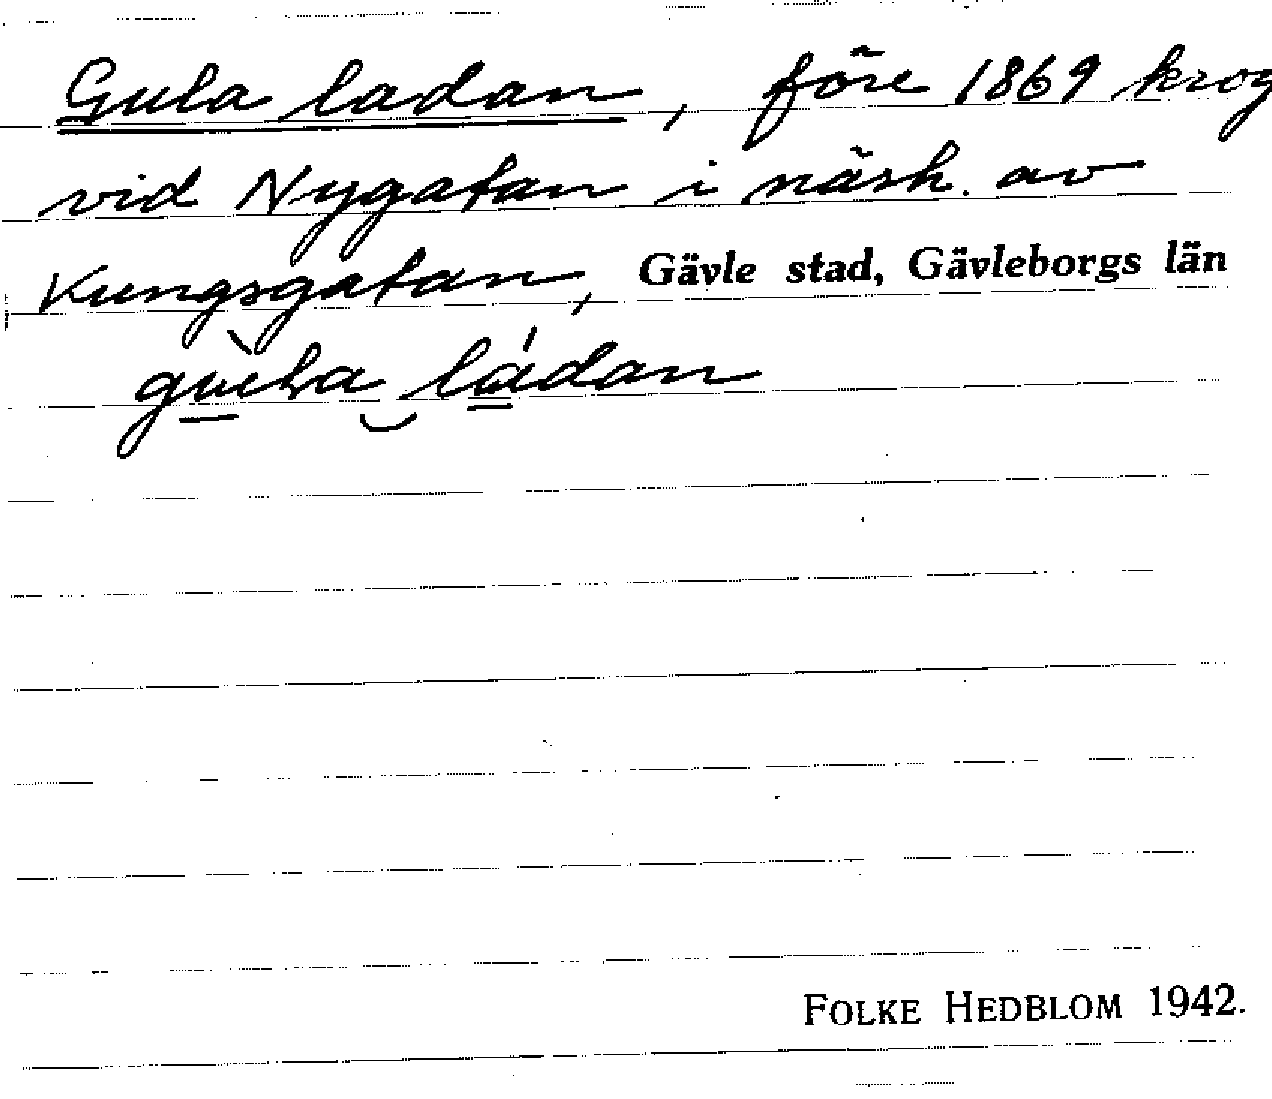 Gula ladan, före 1869 krog
vid Nygatan i närh. av
Kungsgatan, Gävle stad, Gävleborgs län
ladan
FOLKE HEDBLOM 1942.